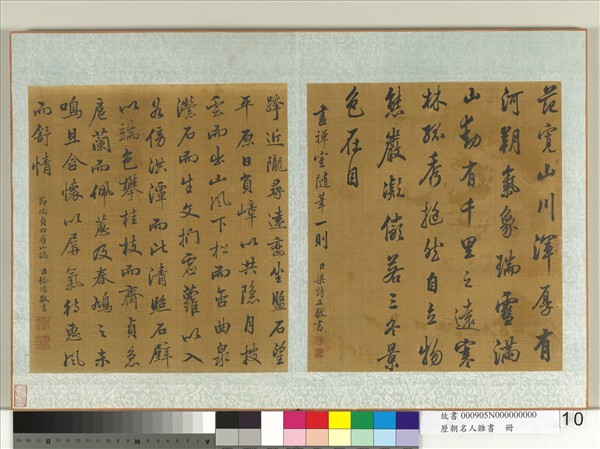 范寬山川渾厚有
河朔氣象瑞雪滿
山動有千里之遠寒
林孤秀挺然自立物
態嚴凝儼若三冬景
色在目
畫禪室隨筆一則 臣梁詩正敬書
跨近隴尋遠巒坐盤石望
平原日負嶂以共隱月披
雲而出山風下松而含曲泉
瀠石而生文捫虛蘿以入
谷傍洪潭而比清照石壁
以端色攀桂枝而齊貞忽
扈蘭而佩蕙及春鳩之未
鳴且含懷以屏氣待惠風
而舒情
節陶貞白尋山誌 臣嵇璜敬書
故書 000905N000000000
歷朝名人雜書 冊
10